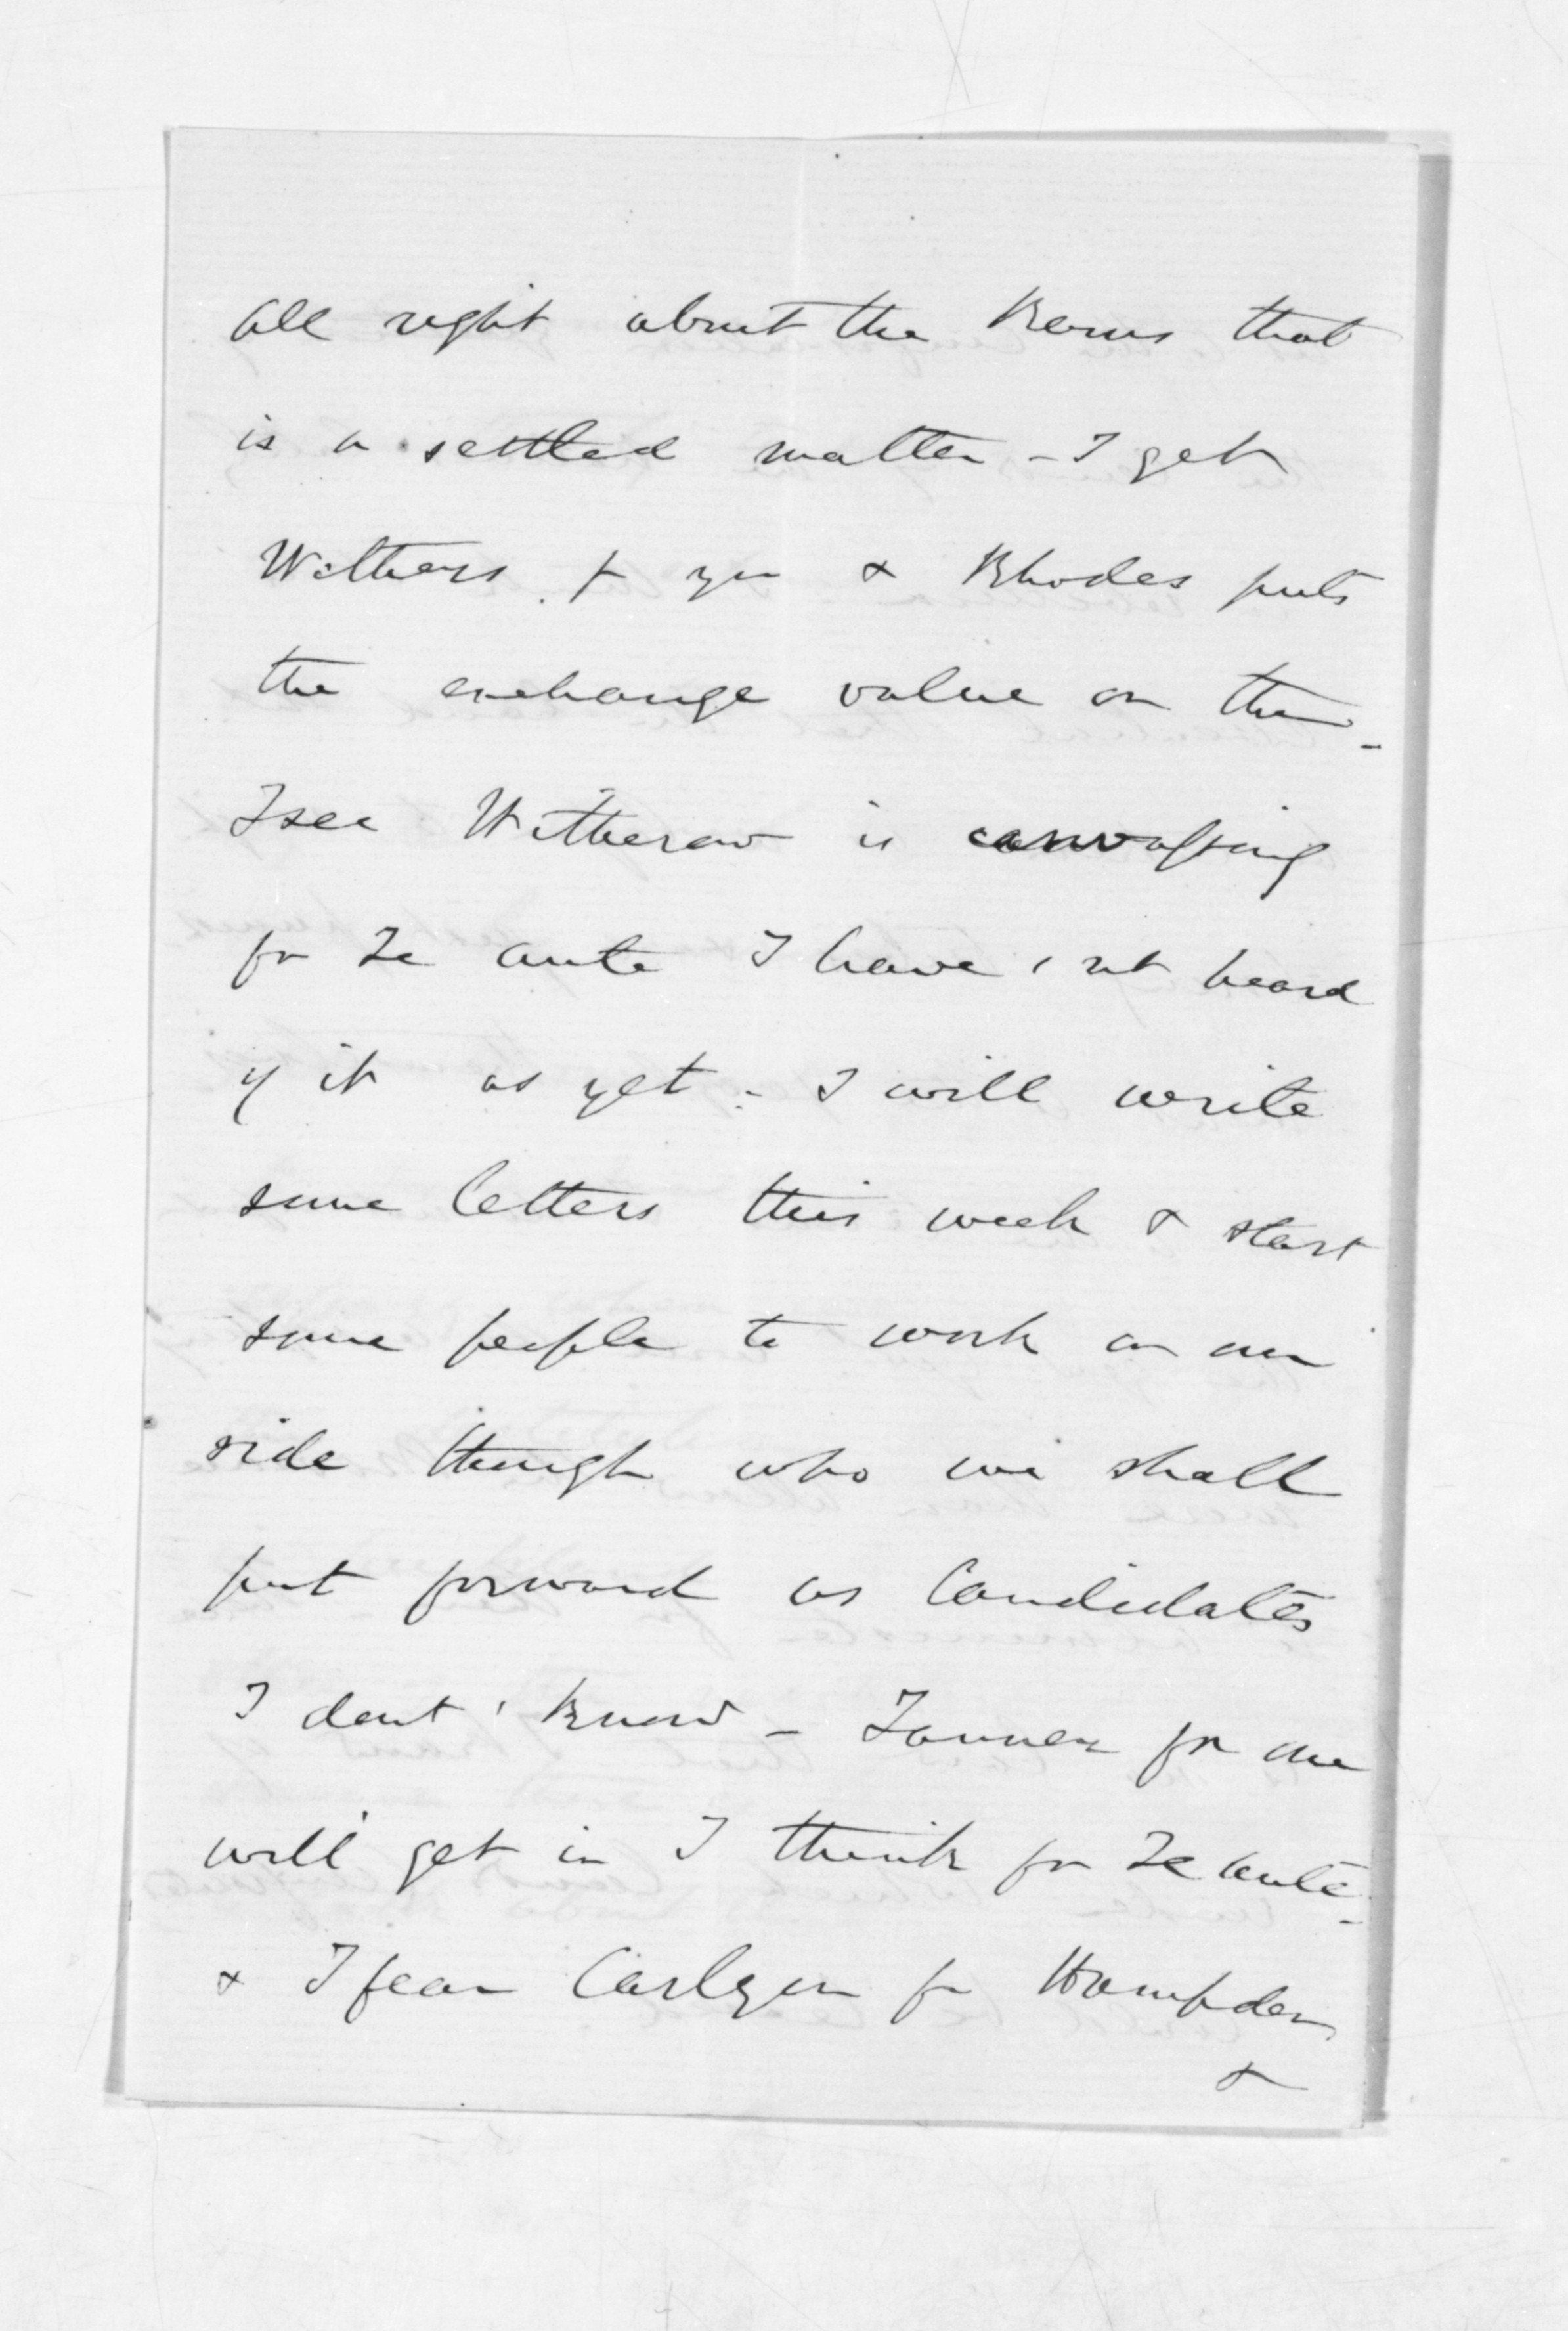 all right about the Rams that
is a settled matter - I get
Wethers fr you & Rhodes puts
the exchange value on them -
I see Witherow is canvassing
for Te Aute I have not heard
of it as yet - I will write
some letters this week & start
some people to work on our
side though who we shall
put forward as Candidates
I dont know - Tanner for one
will get in I think for Te Aute -
& I fear Carlyon for Hampden
&